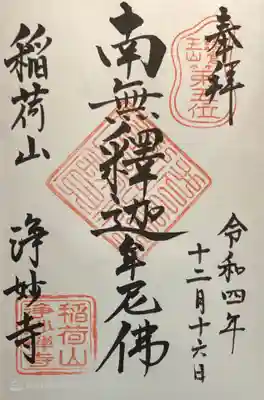 奉拜
五山
第五位
令和四年
十二月十六日
南無釋迦牟尼佛
稲荷山
浄妙寺
稲荷山
浄妙禅寺